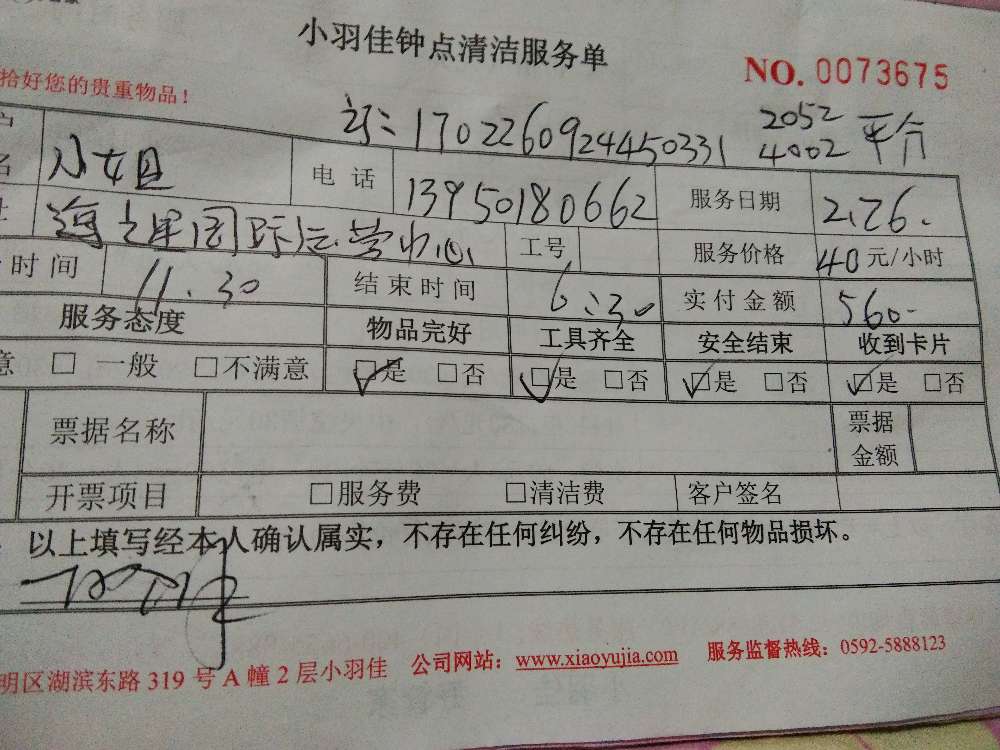 小羽佳钟点清洁服务单
NO. 0073675
拾好您的贵重物品!
订: 1702260924450331 2052 4002 平台
小姐 电话 13950180662 服务日期 2.26.
国际运营中心 工号 服务价格 40元/小时
时间 11.30 结束时间 6:30 实付金额 560
服务态度 物品完好 工具齐全 安全结束 收到卡片
意 □ 一般 □不满意 □是 □否 □是 □否 □是 □否 □是 □否
票据名称 票据金额
开票项目 □服务费 □清洁费 客户签名
以上填写经本人确认属实，不存在任何纠纷，不存在任何物品损坏。
明区湖滨东路 319 号 A 幢 2 层小羽佳 公司网站：www.xiaoyujia.com 服务监督热线：0592-5888123